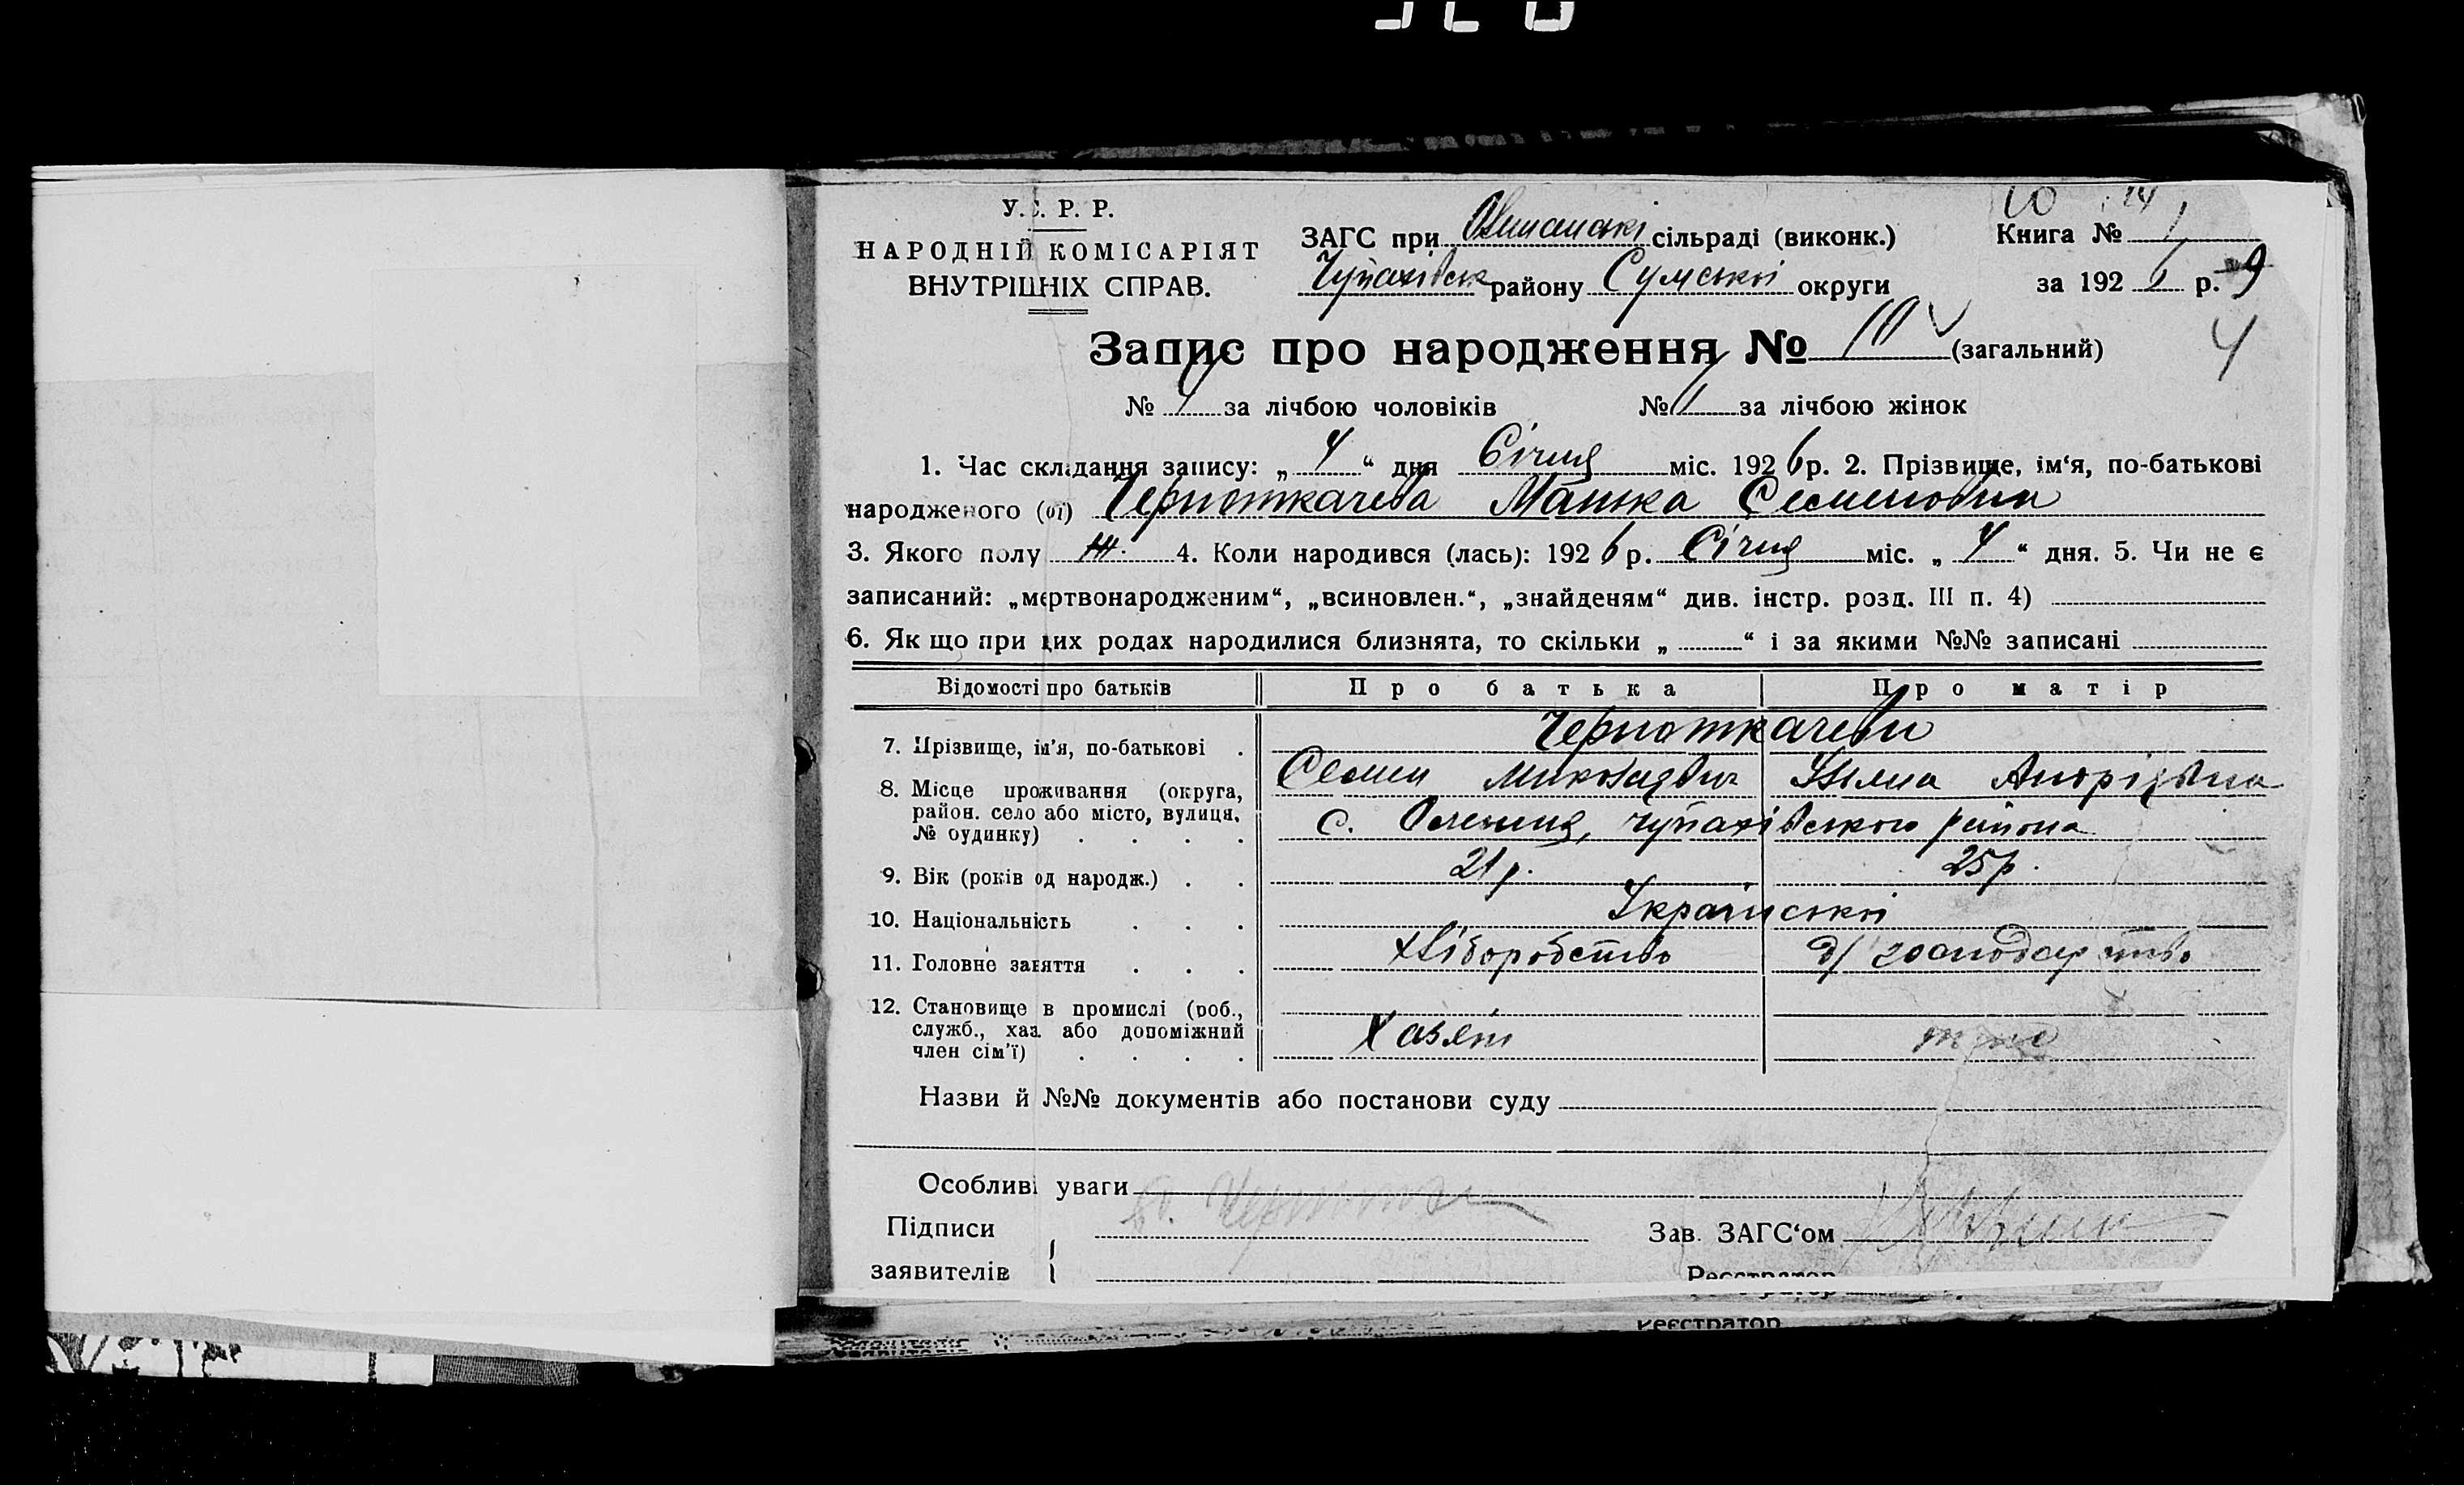 У.С.Р.Р.
НАРОДНІЙ КОМІСАРІЯТ
ВНУТРІШНІХ СПРАВ.
ЗАГС при сільраді (виконк.)
Чупахівськ району Сумської округи
Книга № 1
за 1926 р.
9
4
Запис про народження № (загальний)
№ 4 за лічбою чоловіків № за лічбою жінок
1. Час складання запису: „ 4 “ дня Січня міс. 1926 р. 2. Прізвище, ім‘я, по-батькові
народженого (ої) Черноткачева Манька Семеновна
3. Якого полу ж. 4. Коли народився (лась): 1926 р. Січня міс. „ 4 “ дня. 5. Чи не є
записаний: „мертвонародженим“, „всиновлен.“, „знайденям“ див. інстр. розд. III п. 4)
6. Як що при цих родах народилися близнята, то скільки „ “ і за якими №№ записані
Відомості про батьків Про батька Про матір
Черноткачеви
7. Прізвище, ім'я, по-батькові .
Семен Миколаєвич
8. Місце проживання (округа,
район. село або місто, вулиця,
№ будинку) . . . .
с. чупахівського района
9. Вік (років од народж.) . . 21 р. 25 р.
10. Національність . . . Української
11. Головне заняття . . . хліборобство д/ господарство
12. Становище в промислі (роб.,
служб., хаз. або допоміжний
член сім'ї) . . . .
Хазяін
Назви й №№ документів або постанови суду
Особливі уваги
Підписи
заявителів
Зав. ЗАГС‘ом
Реєстратор
Реєстратор